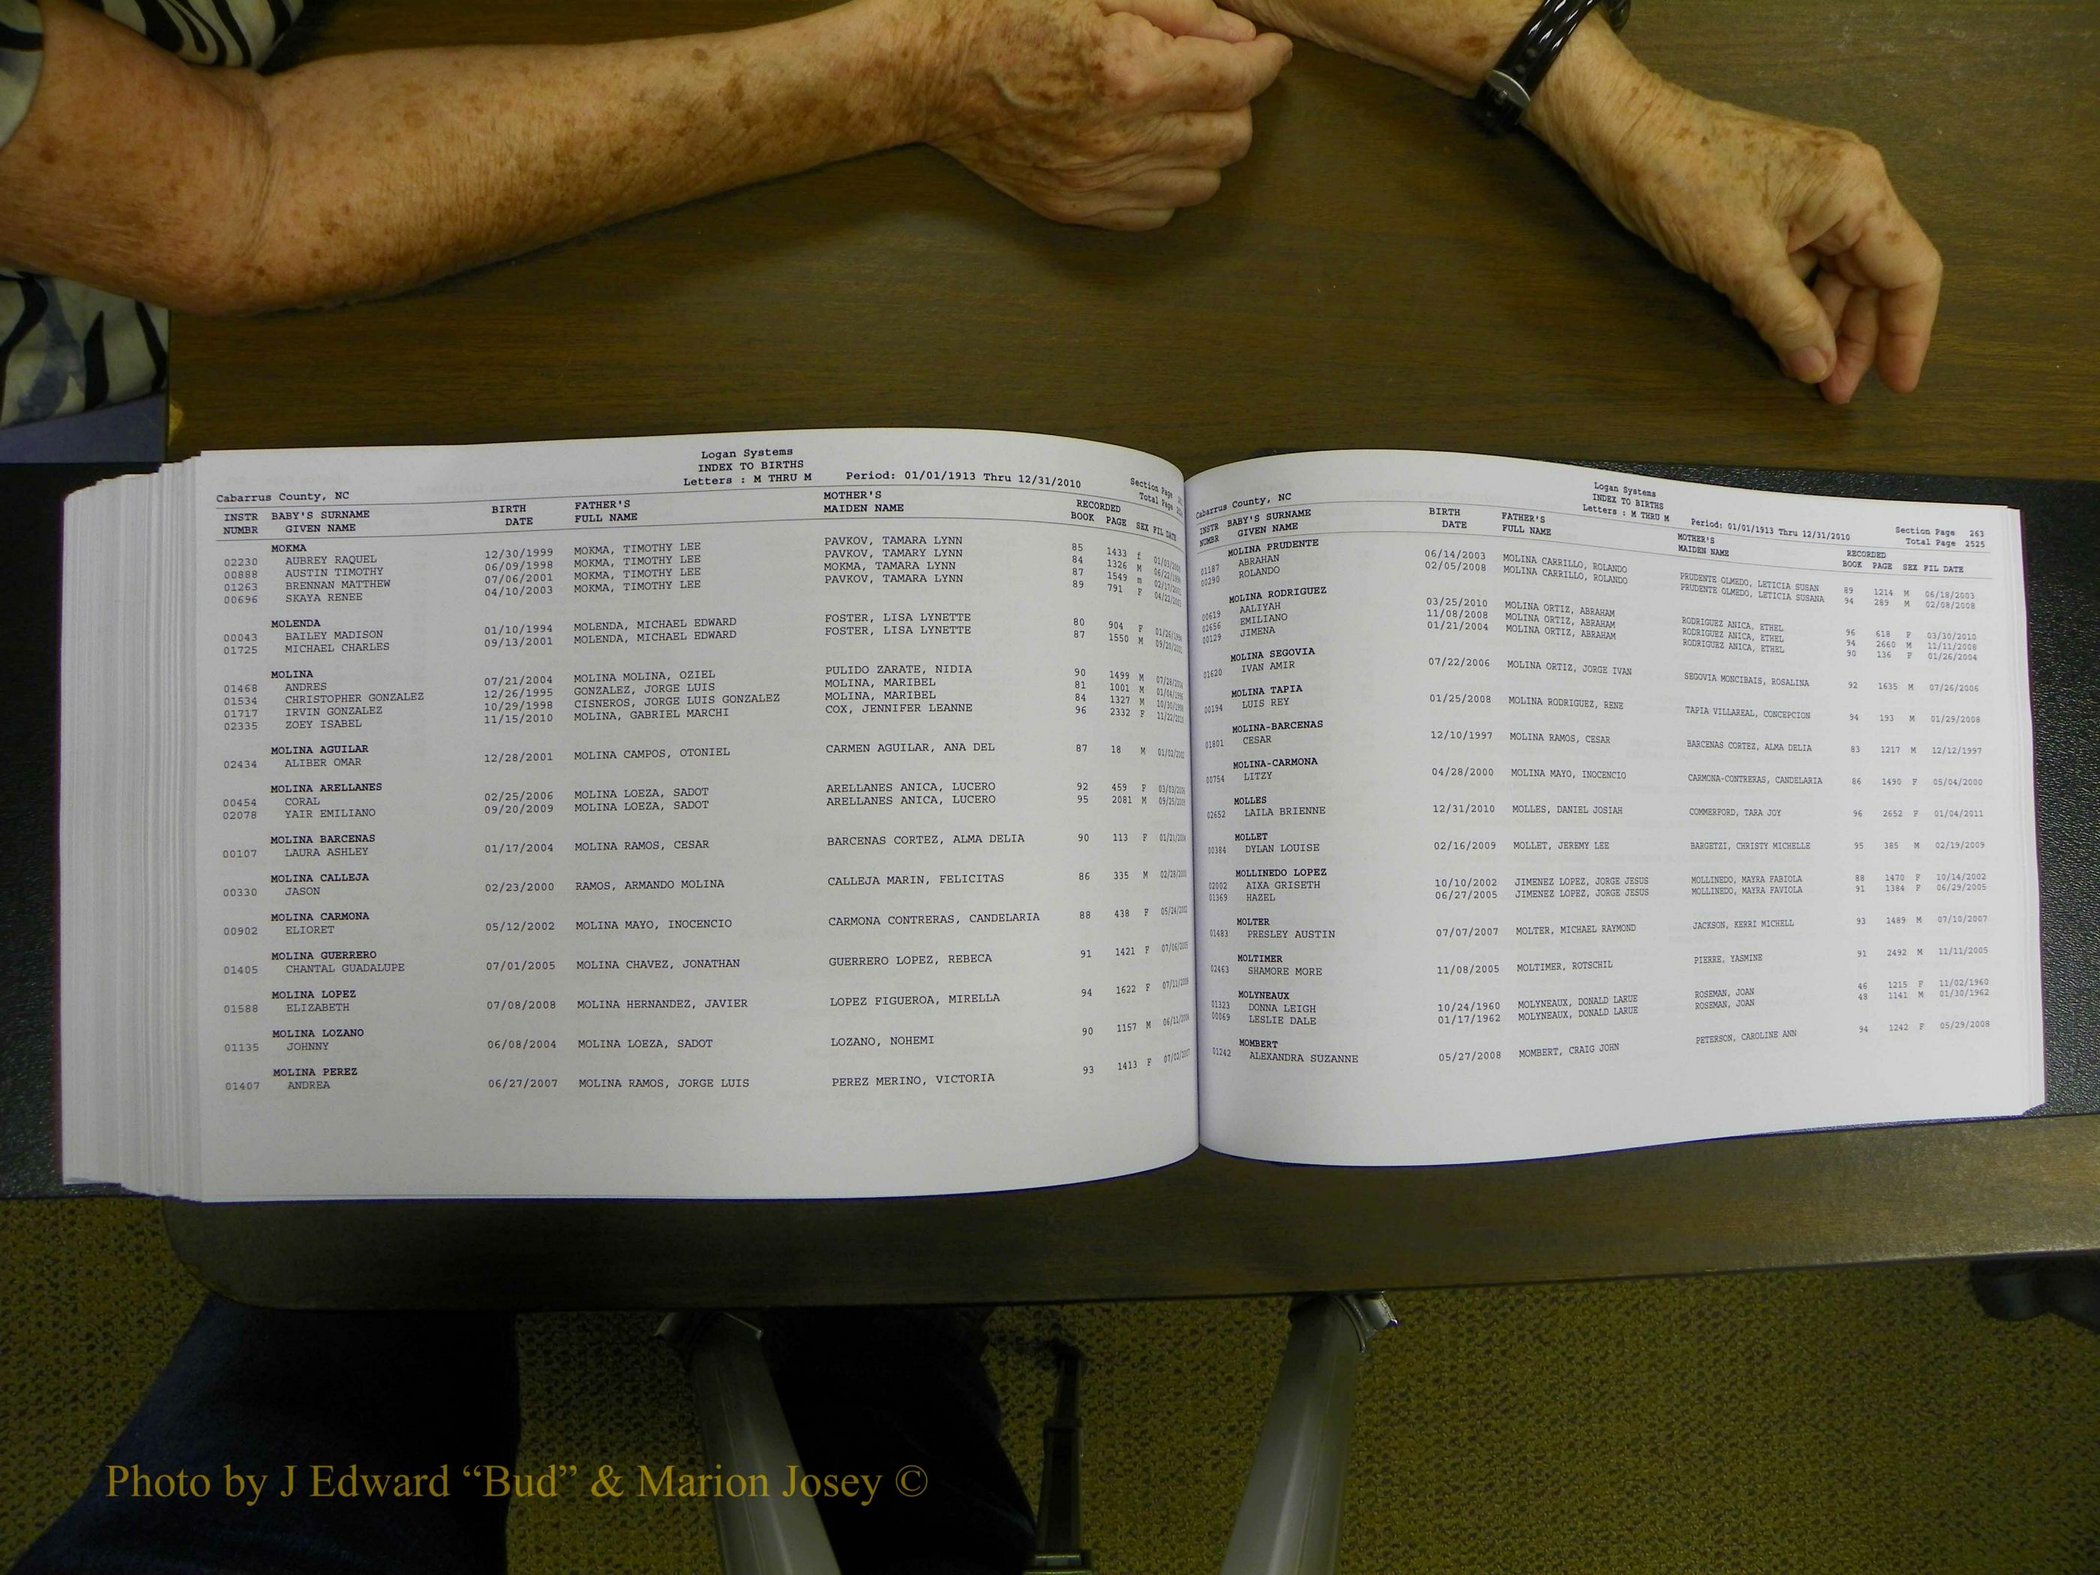 Logan Systems
INDEX TO BIRTHS
Letters : M THRU M Period: 01/01/1913 Thru 12/31/2010 Section Page
Cabarrus County, NC Total Page
INSTR BABY'S SURNAME BIRTH FATHER'S MOTHER'S RECORDED
NUMBR GIVEN NAME DATE FULL NAME MAIDEN NAME BOOK PAGE SEX FIL DATE
MOKMA
02230 AUBREY RAQUEL 12/30/1999 MOKMA, TIMOTHY LEE PAVKOV, TAMARA LYNN 85 1433 f
00888 AUSTIN TIMOTHY 06/09/1998 MOKMA, TIMOTHY LEE PAVKOV, TAMARY LYNN 84 1326 M
01263 BRENNAN MATTHEW 07/06/2001 MOKMA, TIMOTHY LEE MOKMA, TAMARA LYNN 87 1549 m
00696 SKAYA RENEE 04/10/2003 MOKMA, TIMOTHY LEE PAVKOV, TAMARA LYNN 89 791 F
MOLENDA
00043 BAILEY MADISON 01/10/1994 MOLENDA, MICHAEL EDWARD FOSTER, LISA LYNETTE 80 904 F
01725 MICHAEL CHARLES 09/13/2001 MOLENDA, MICHAEL EDWARD FOSTER, LISA LYNETTE 87 1550 M
MOLINA
01468 ANDRES 07/21/2004 MOLINA MOLINA, OZIEL PULIDO ZARATE, NIDIA 90 1499 M
01534 CHRISTOPHER GONZALEZ 12/26/1995 GONZALEZ, JORGE LUIS MOLINA, MARIBEL 81 1001 M
01717 IRVIN GONZALEZ 10/29/1998 CISNEROS, JORGE LUIS GONZALEZ MOLINA, MARIBEL 84 1327 M
02335 ZOEY ISABEL 11/15/2010 MOLINA, GABRIEL MARCHI COX, JENNIFER LEANNE 96 2332 F
MOLINA AGUILAR
02434 ALIBER OMAR 12/28/2001 MOLINA CAMPOS, OTONIEL CARMEN AGUILAR, ANA DEL 87 18 M 01/02/2002
MOLINA ARELLANES
00454 CORAL 02/25/2006 MOLINA LOEZA, SADOT ARELLANES ANICA, LUCERO 92 459 F 03/03/2006
02078 YAIR EMILIANO 09/20/2009 MOLINA LOEZA, SADOT ARELLANES ANICA, LUCERO 95 2081 M 09/25/2009
MOLINA BARCENAS
00107 LAURA ASHLEY 01/17/2004 MOLINA RAMOS, CESAR BARCENAS CORTEZ, ALMA DELIA 90 113 F 01/21/2004
MOLINA CALLEJA
00330 JASON 02/23/2000 RAMOS, ARMANDO MOLINA CALLEJA MARIN, FELICITAS 86 335 M 02/28/2000
MOLINA CARMONA
00902 ELIORET 05/12/2002 MOLINA MAYO, INOCENCIO CARMONA CONTRERAS, CANDELARIA 88 438 F 05/24/2002
MOLINA GUERRERO
01405 CHANTAL GUADALUPE 07/01/2005 MOLINA CHAVEZ, JONATHAN GUERRERO LOPEZ, REBECA 91 1421 F 07/06/2005
MOLINA LOPEZ
01588 ELIZABETH 07/08/2008 MOLINA HERNANDEZ, JAVIER LOPEZ FIGUEROA, MIRELLA 94 1622 F 07/11/2008
MOLINA LOZANO
01135 JOHNNY 06/08/2004 MOLINA LOEZA, SADOT LOZANO, NOHEMI 90 1157 M 06/11/2004
MOLINA PEREZ
01407 ANDREA 06/27/2007 MOLINA RAMOS, JORGE LUIS PEREZ MERINO, VICTORIA 93 1413 F 07/02/2007
Logan Systems
INDEX TO BIRTHS
Letters : M THRU M Period: 01/01/1913 Thru 12/31/2010 Section Page 263
Cabarrus County, NC Total Page 2525
INSTR BABY'S SURNAME BIRTH FATHER'S MOTHER'S RECORDED
NUMBR GIVEN NAME DATE FULL NAME MAIDEN NAME BOOK PAGE SEX FIL DATE
MOLINA PRUDENTE
01187 ABRAHAN 06/14/2003 MOLINA CARRILLO, ROLANDO PRUDENTE OLMEDO, LETICIA SUSAN 89 1214 M 06/18/2003
00290 ROLANDO 02/05/2008 MOLINA CARRILLO, ROLANDO PRUDENTE OLMEDO, LETICIA SUSANA 94 289 M 02/08/2008
MOLINA RODRIGUEZ
00619 AALIYAH 03/25/2010 MOLINA ORTIZ, ABRAHAM RODRIGUEZ ANICA, ETHEL 96 618 F 03/30/2010
02656 EMILIANO 11/08/2008 MOLINA ORTIZ, ABRAHAM RODRIGUEZ ANICA, ETHEL 94 2660 M 11/11/2008
00129 JIMENA 01/21/2004 MOLINA ORTIZ, ABRAHAM RODRIGUEZ ANICA, ETHEL 90 136 F 01/26/2004
MOLINA SEGOVIA
01620 IVAN AMIR 07/22/2006 MOLINA ORTIZ, JORGE IVAN SEGOVIA MONCIBAIS, ROSALINA 92 1635 M 07/26/2006
MOLINA TAPIA
00194 LUIS REY 01/25/2008 MOLINA RODRIGUEZ, RENE TAPIA VILLAREAL, CONCEPCION 94 193 M 01/29/2008
MOLINA-BARCENAS
01801 CESAR 12/10/1997 MOLINA RAMOS, CESAR BARCENAS CORTEZ, ALMA DELIA 83 1217 M 12/12/1997
MOLINA-CARMONA
00754 LITZY 04/28/2000 MOLINA MAYO, INOCENCIO CARMONA-CONTRERAS, CANDELARIA 86 1490 F 05/04/2000
MOLLES
02652 LAILA BRIENNE 12/31/2010 MOLLES, DANIEL JOSIAH COMMERFORD, TARA JOY 96 2652 F 01/04/2011
MOLLET
00384 DYLAN LOUISE 02/16/2009 MOLLET, JEREMY LEE BARGETZI, CHRISTY MICHELLE 95 385 M 02/19/2009
MOLLINEDO LOPEZ
02002 AIXA GRISETH 10/10/2002 JIMENEZ LOPEZ, JORGE JESUS MOLLINEDO, MAYRA FABIOLA 88 1470 F 10/14/2002
01369 HAZEL 06/27/2005 JIMENEZ LOPEZ, JORGE JESUS MOLLINEDO, MAYRA FAVIOLA 91 1384 F 06/29/2005
MOLTER
01483 PRESLEY AUSTIN 07/07/2007 MOLTER, MICHAEL RAYMOND JACKSON, KERRI MICHELL 93 1489 M 07/10/2007
MOLTIMER
02463 SHAMORE MORE 11/08/2005 MOLTIMER, ROTSCHIL PIERRE, YASMINE 91 2492 M 11/11/2005
MOLYNEAUX
01323 DONNA LEIGH 10/24/1960 MOLYNEAUX, DONALD LARUE ROSEMAN, JOAN 46 1215 F 11/02/1960
00069 LESLIE DALE 01/17/1962 MOLYNEAUX, DONALD LARUE ROSEMAN, JOAN 48 1141 M 01/30/1962
MOMBERT
01242 ALEXANDRA SUZANNE 05/27/2008 MOMBERT, CRAIG JOHN PETERSON, CAROLINE ANN 94 1242 F 05/29/2008
Photo by J Edward “Bud” & Marion Josey ©